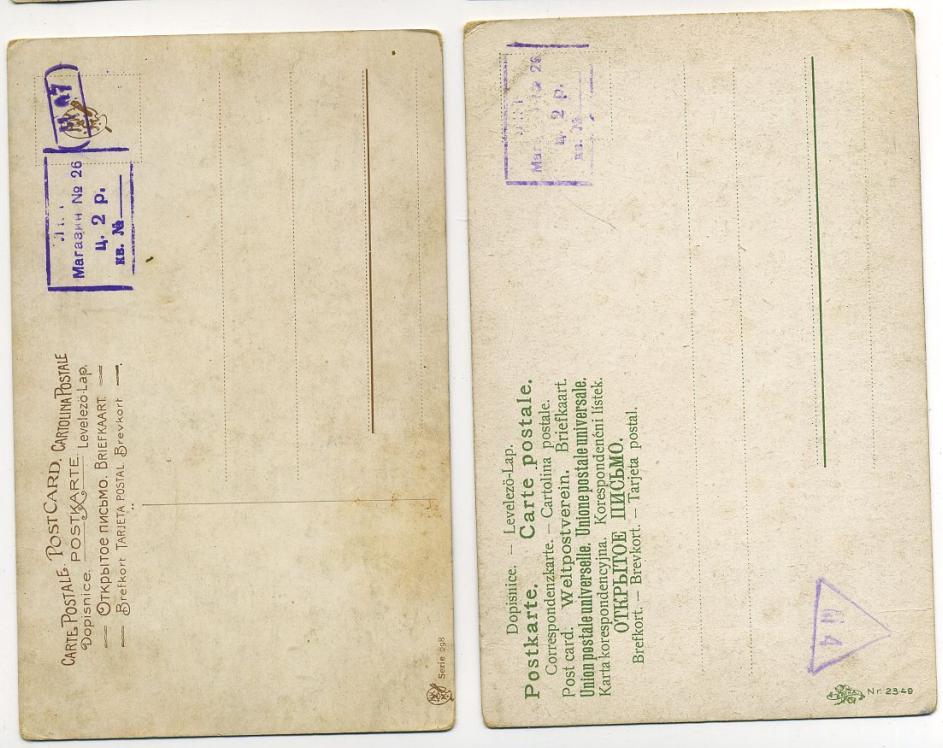 CARTE POSTALE. POST CARD. CARTOLINA POSTALE
Dopisnice. POSTKARTE. Levelező-Lap.
— Открытое письмо. BRIEFKAART. —
— Brefkort TARJETA POSTAL. Brevkort —
Магазин № 26
ц. 2 р.
кв. №
Serie 298
Dopisnice. — Levelező-Lap.
Postkarte. Carte postale.
Correspondenzkarte. — Cartolina postale.
Post card. Weltpostverein. Briefkaart.
Union postale universelle. Unione postale universale.
Karta korespondencyjna. Korespondenční lístek.
ОТКРЫТОЕ ПИСЬМО.
Brefkort. — Brevkort. — Tarjeta postal.
ц. 2 р.
кв. №
Nr. 2349